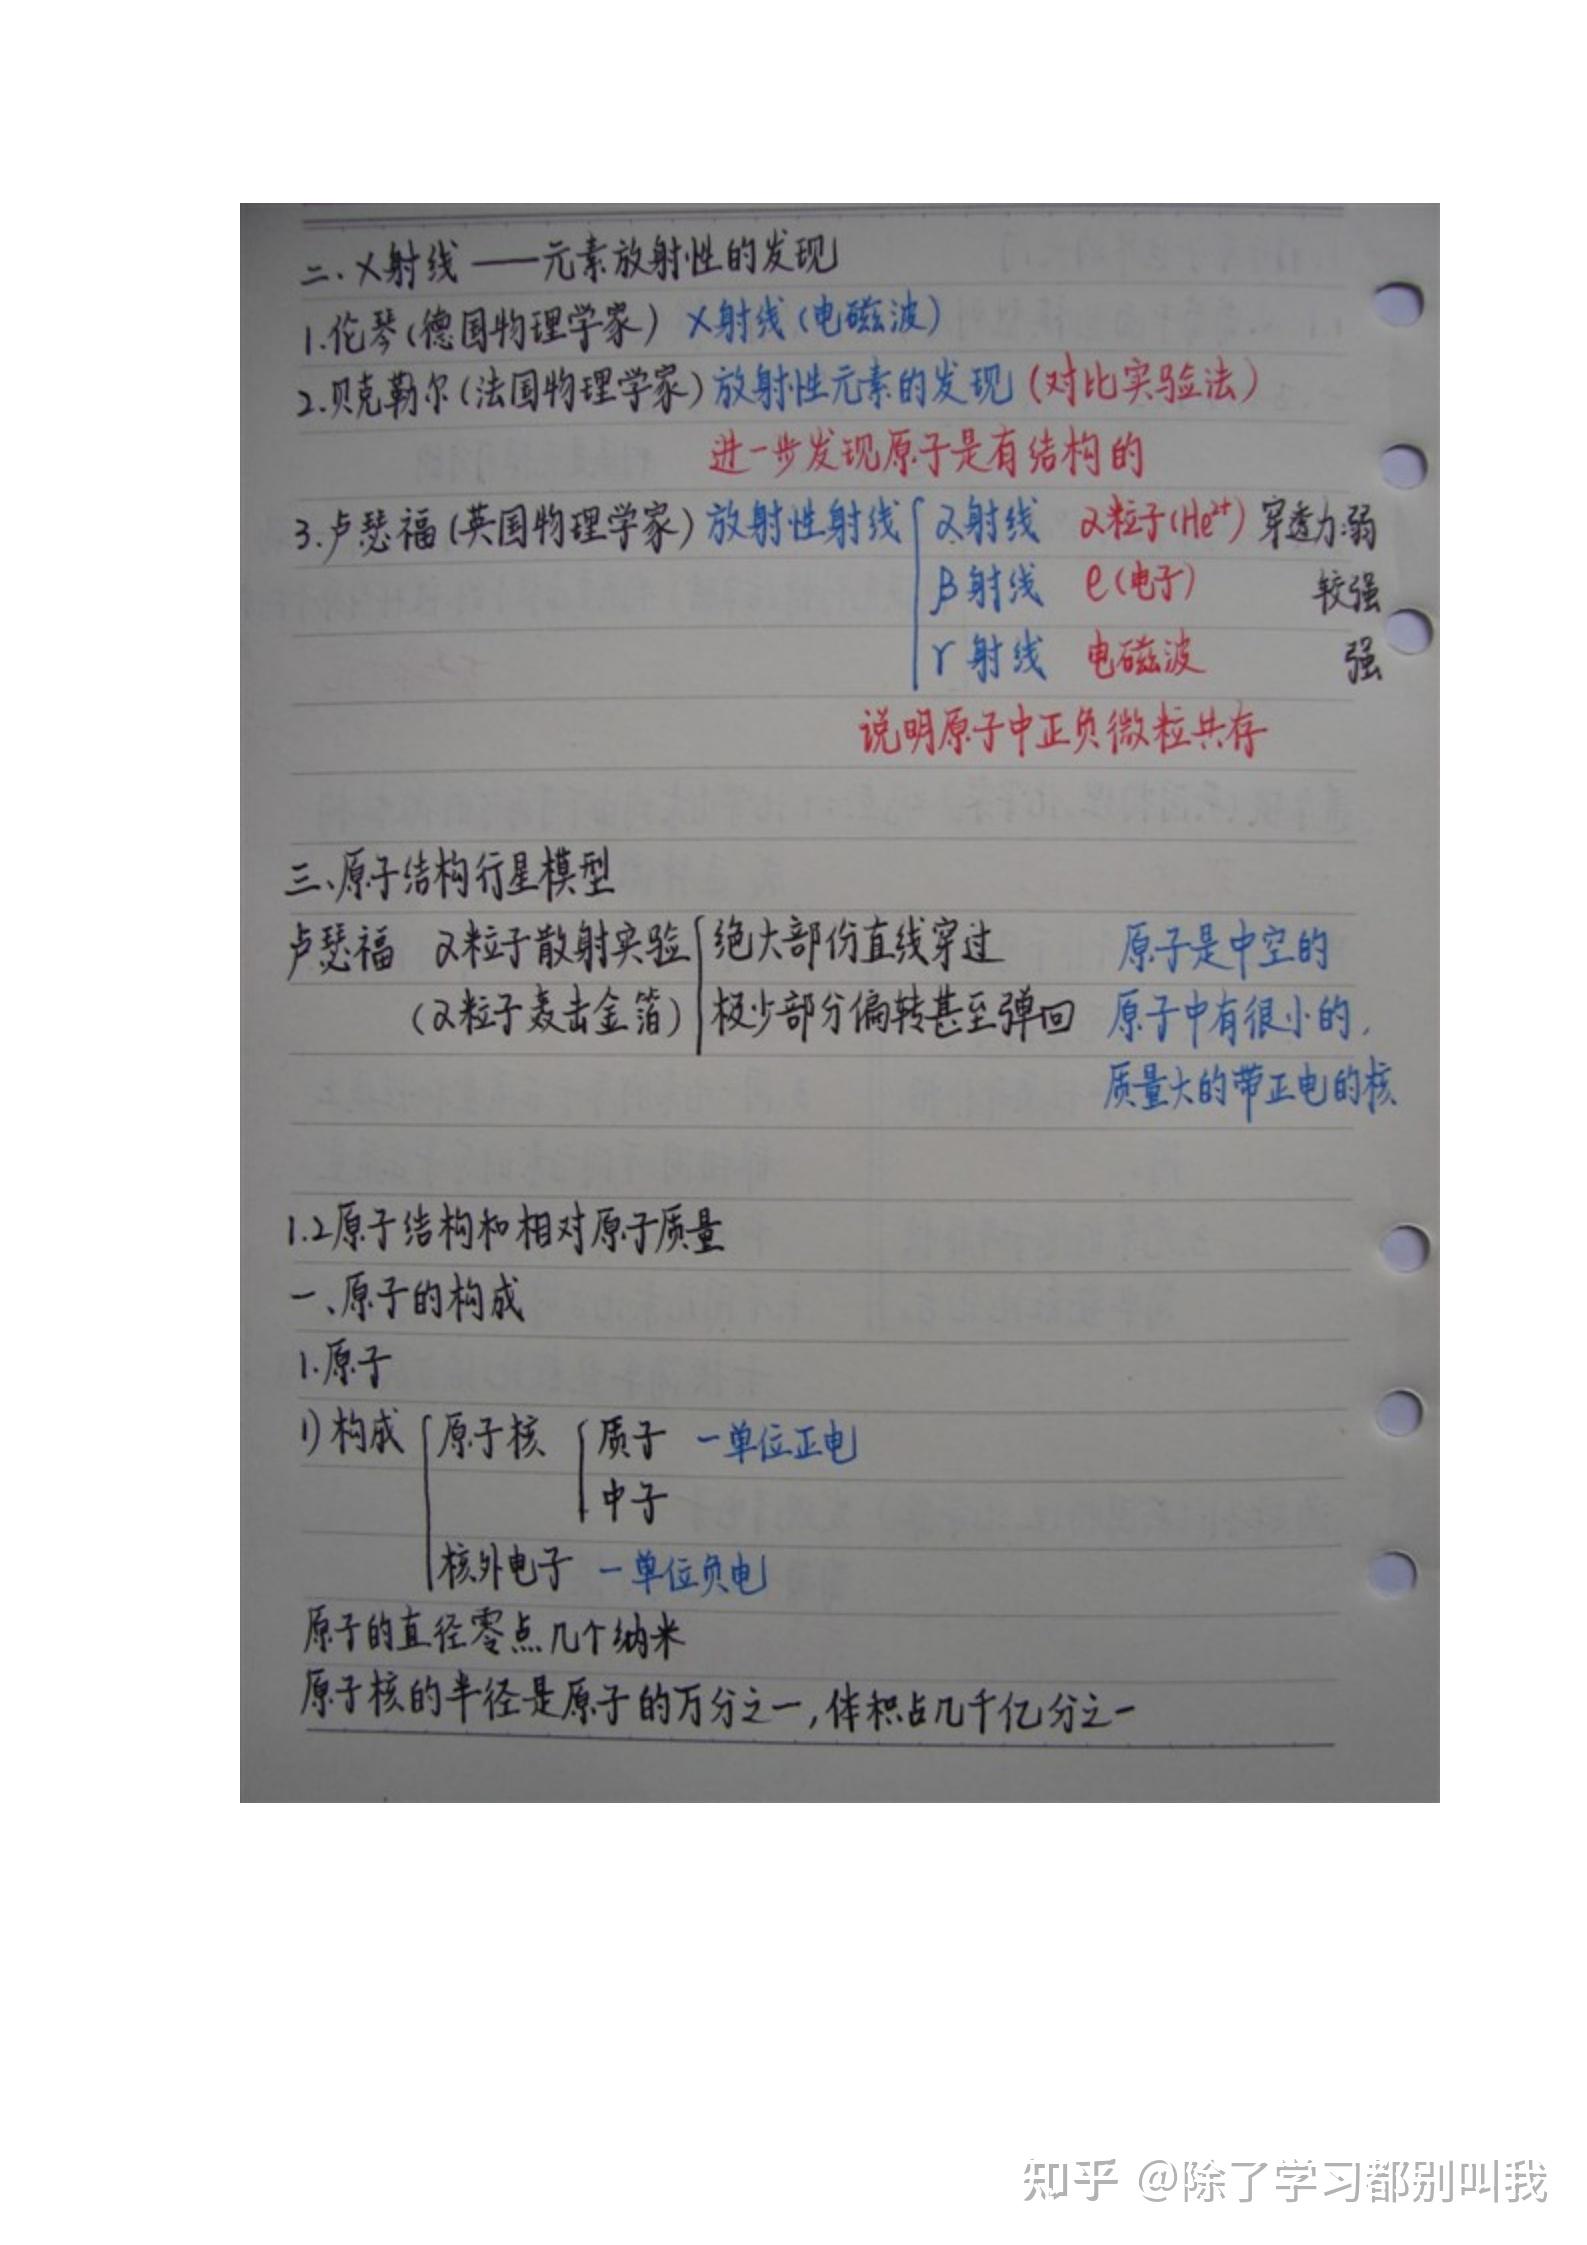 二、X射线——元素放射性的发现
1.伦琴(德国物理学家) X射线(电磁波)
2.贝克勒尔(法国物理学家)放射性元素的发现(对比实验法)
进一步发现原子是有结构的
3.卢瑟福(英国物理学家)放射性射线 α射线 α粒子(He²⁺) 穿透力:弱
β射线 e(电子) 较强
γ射线 电磁波 强
说明原子中正负微粒共存
三、原子结构行星模型
卢瑟福 α粒子散射实验 绝大部份直线穿过 原子是中空的
(α粒子轰击金箔) 极少部分偏转甚至弹回 原子中有很小的,
质量大的带正电的核
1.2原子结构和相对原子质量
一、原子的构成
1.原子
1)构成 原子核 质子 一单位正电
中子
核外电子 一单位负电
原子的直径零点几个纳米
原子核的半径是原子的万分之一,体积占几千亿分之一
知乎 @除了学习都别叫我